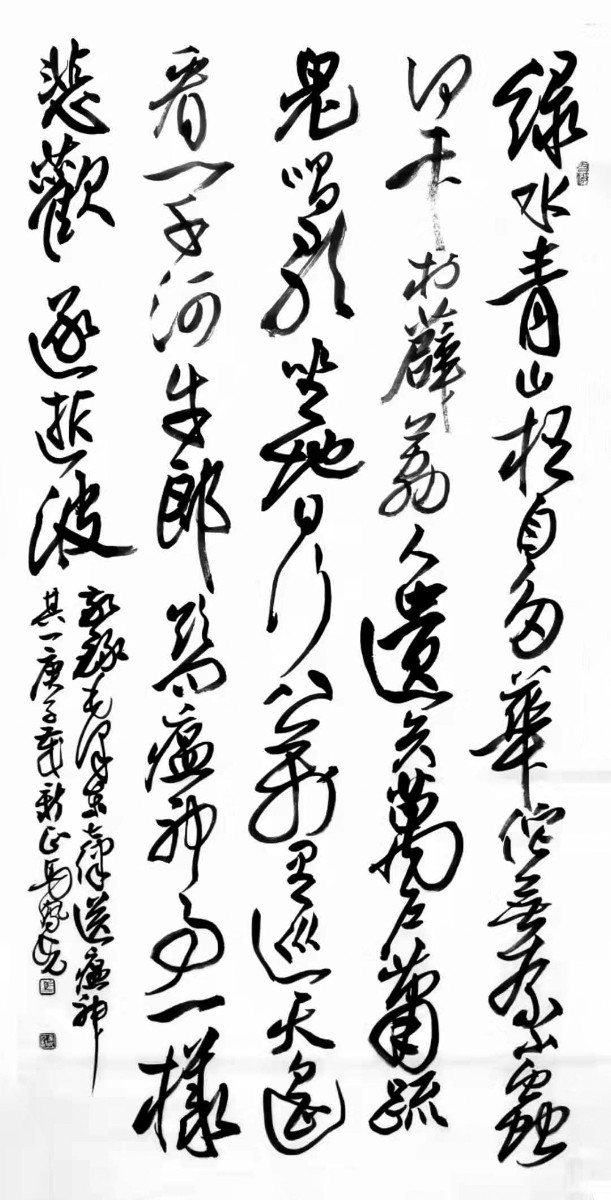 绿水青山枉自多華佗無奈小蟲
何千村薜荔人遺矢萬户蕭疏
鬼唱歌坐地日行八萬里巡天遙
看一千河牛郎欲問瘟神事一樣
悲歡逐逝波
敬錄毛澤東七律送瘟神
其一庚子歲新正馬